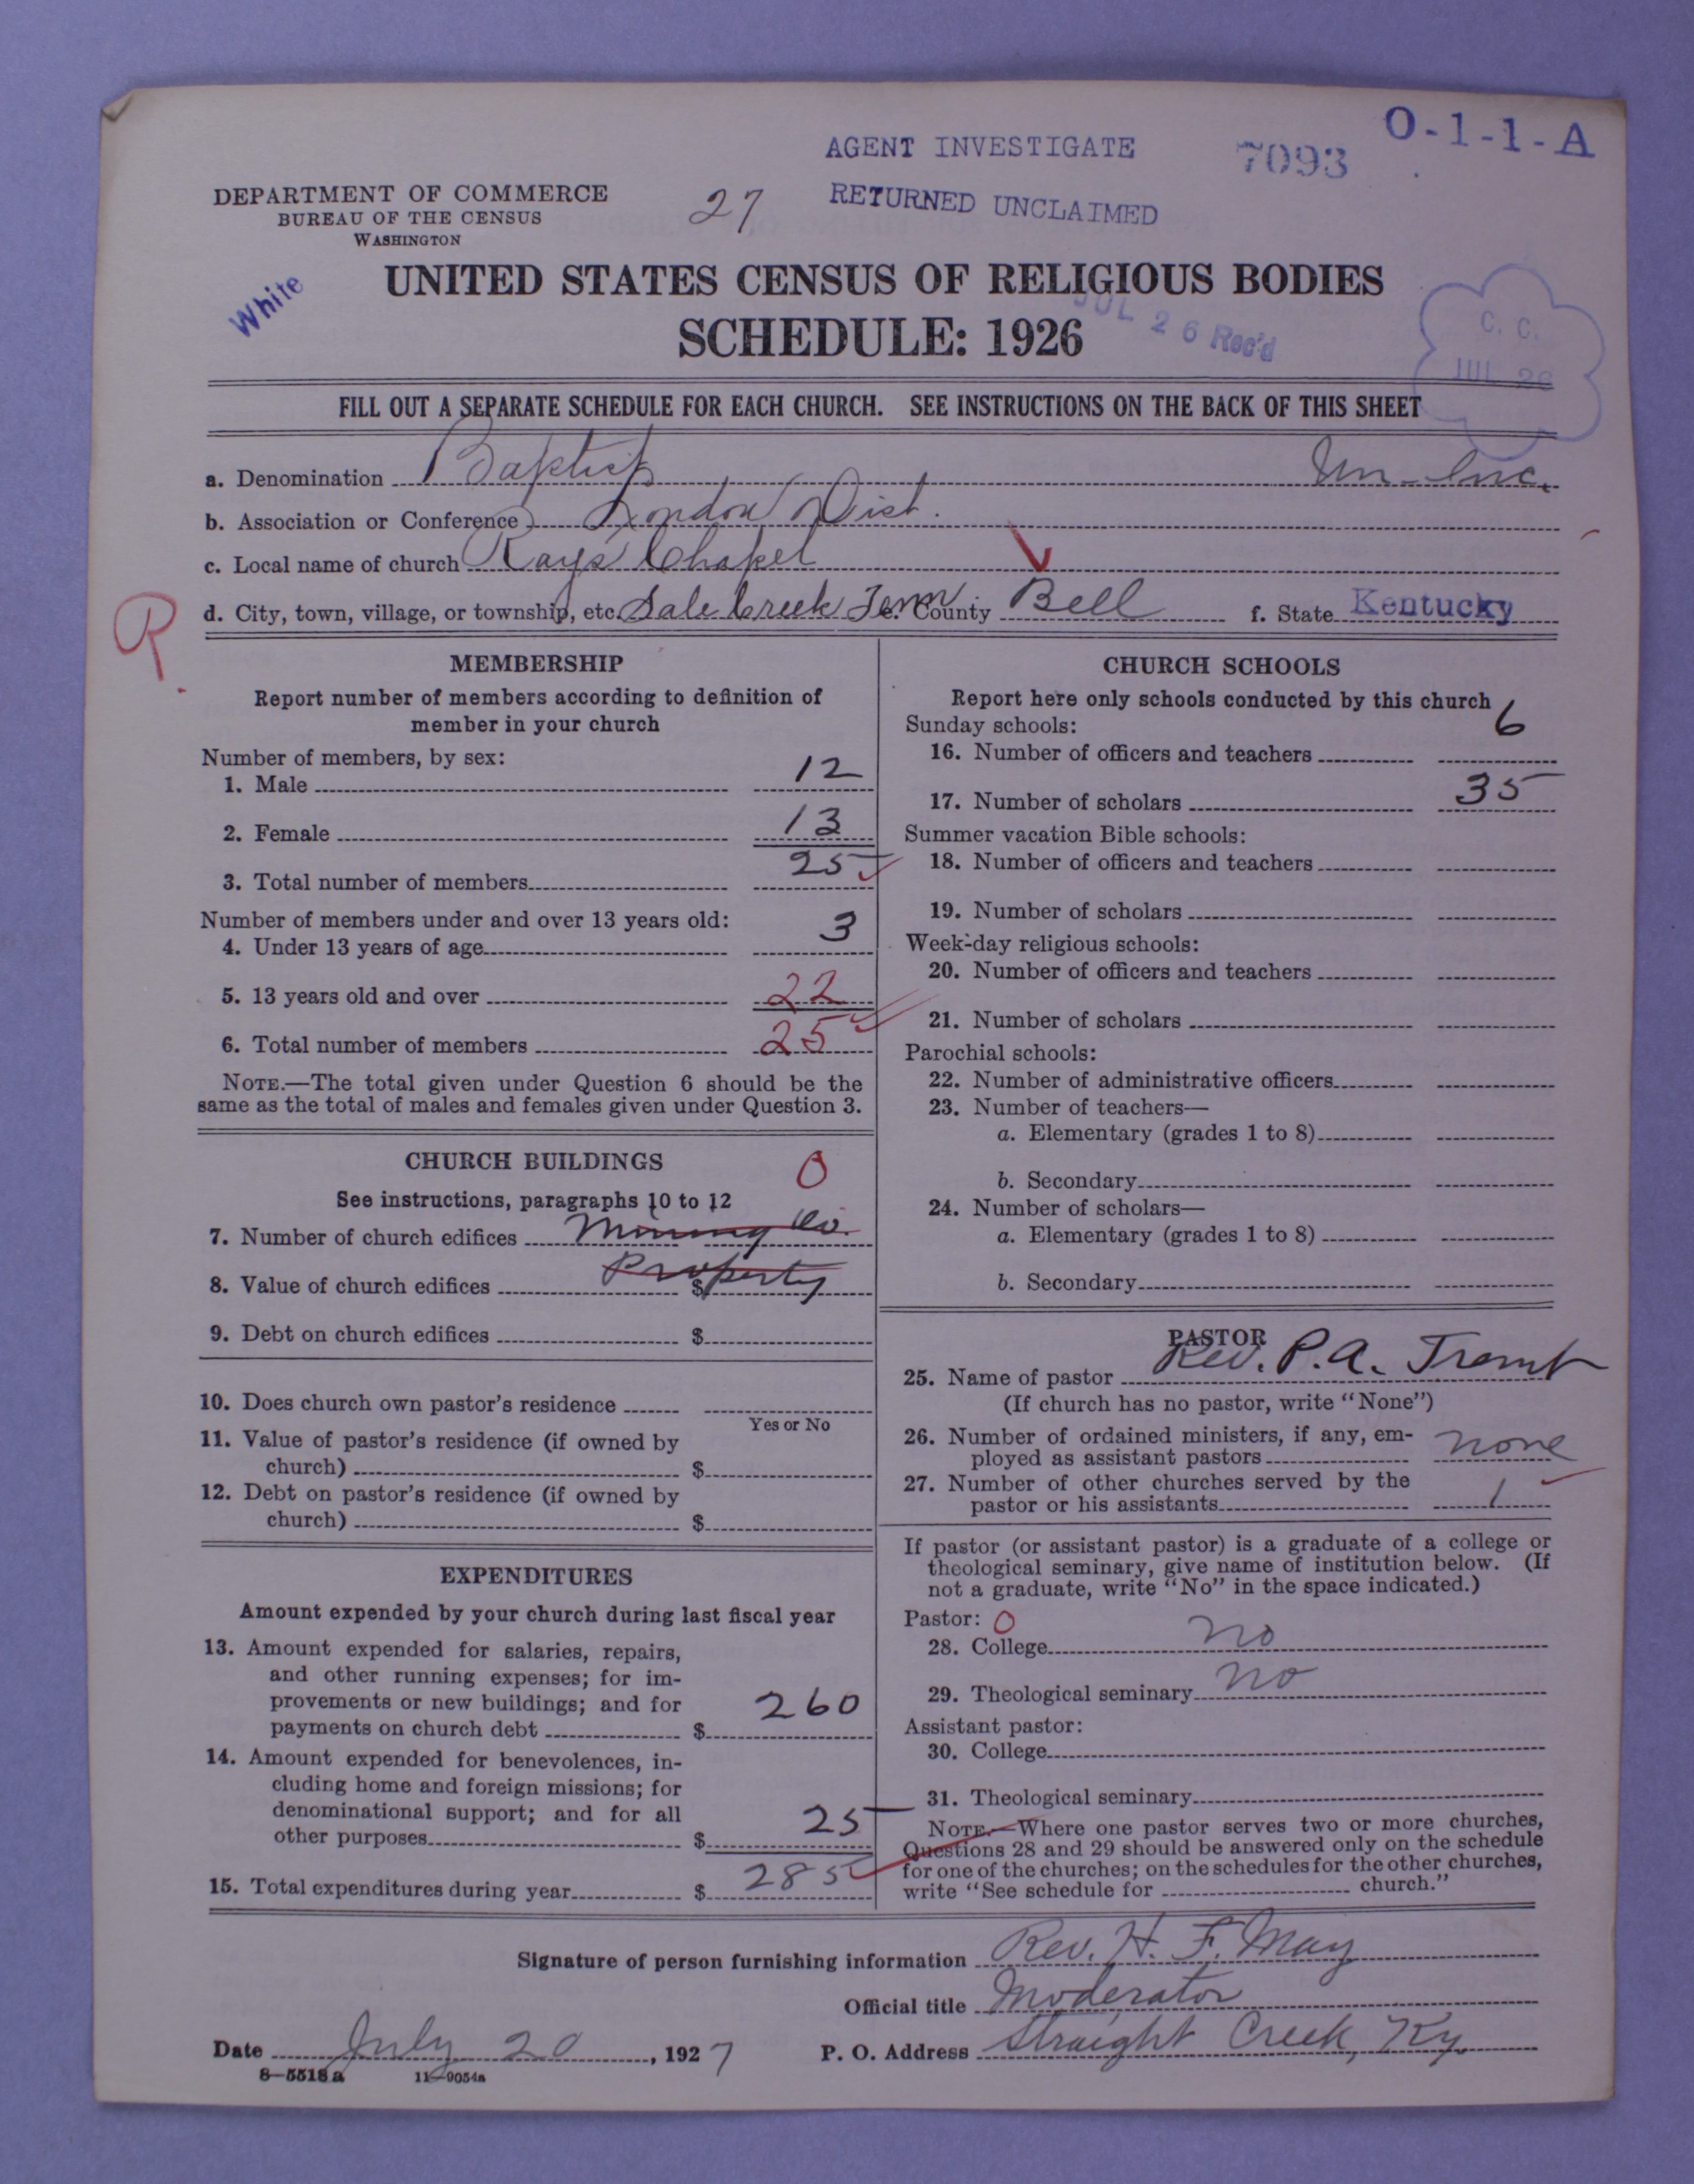 O-1-1-A
AGENT INVESTIGATE 7093
DEPARTMENT OF COMMERCE
BUREAU OF THE CENSUS
WASHINGTON
27
RETURNED UNCLAIMED
White
UNITED STATES CENSUS OF RELIGIOUS BODIES
SCHEDULE: 1926
JUL 26 Rec'd
C. C.
JUL 26
FILL OUT A SEPARATE SCHEDULE FOR EACH CHURCH. SEE INSTRUCTIONS ON THE BACK OF THIS SHEET
a. Denomination Baptist Un-Inc.
b. Association or Conference London Dist.
c. Local name of church Rays Chapel
R.
d. City, town, village, or township, etc. Sale Creek Tenn e. County Bell f. State Kentucky
MEMBERSHIP
Report number of members according to definition of
member in your church
Number of members, by sex:
1. Male 12
2. Female 13
3. Total number of members 25
Number of members under and over 13 years old:
4. Under 13 years of age 3
5. 13 years old and over 22
6. Total number of members 25
NOTE.—The total given under Question 6 should be the
same as the total of males and females given under Question 3.
CHURCH BUILDINGS 0
See instructions, paragraphs 10 to 12
7. Number of church edifices Mining Co.
8. Value of church edifices $ Property
9. Debt on church edifices $
10. Does church own pastor's residence
Yes or No
11. Value of pastor's residence (if owned by
church) $
12. Debt on pastor's residence (if owned by
church) $
EXPENDITURES
Amount expended by your church during last fiscal year
13. Amount expended for salaries, repairs,
and other running expenses; for im-
provements or new buildings; and for
payments on church debt $ 260
14. Amount expended for benevolences, in-
cluding home and foreign missions; for
denominational support; and for all
other purposes $ 25
15. Total expenditures during year $ 285
CHURCH SCHOOLS
Report here only schools conducted by this church
Sunday schools:
16. Number of officers and teachers 6
17. Number of scholars 35
Summer vacation Bible schools:
18. Number of officers and teachers
19. Number of scholars
Week-day religious schools:
20. Number of officers and teachers
21. Number of scholars
Parochial schools:
22. Number of administrative officers
23. Number of teachers—
a. Elementary (grades 1 to 8)
b. Secondary
24. Number of scholars—
a. Elementary (grades 1 to 8)
b. Secondary
PASTOR
25. Name of pastor Rev. P. A.
(If church has no pastor, write "None")
26. Number of ordained ministers, if any, em-
ployed as assistant pastors none
27. Number of other churches served by the
pastor or his assistants 1
If pastor (or assistant pastor) is a graduate of a college or
theological seminary, give name of institution below. (If
not a graduate, write "No" in the space indicated.)
Pastor: 0
28. College no
29. Theological seminary no
Assistant pastor:
30. College
31. Theological seminary
NOTE.—Where one pastor serves two or more churches,
Questions 28 and 29 should be answered only on the schedule
for one of the churches; on the schedules for the other churches,
write "See schedule for church."
Signature of person furnishing information Rev. H. F. May
Official title Moderator
Date July 20, 1927 P. O. Address Straight Creek, Ky.
8—5518 a 11—9054a